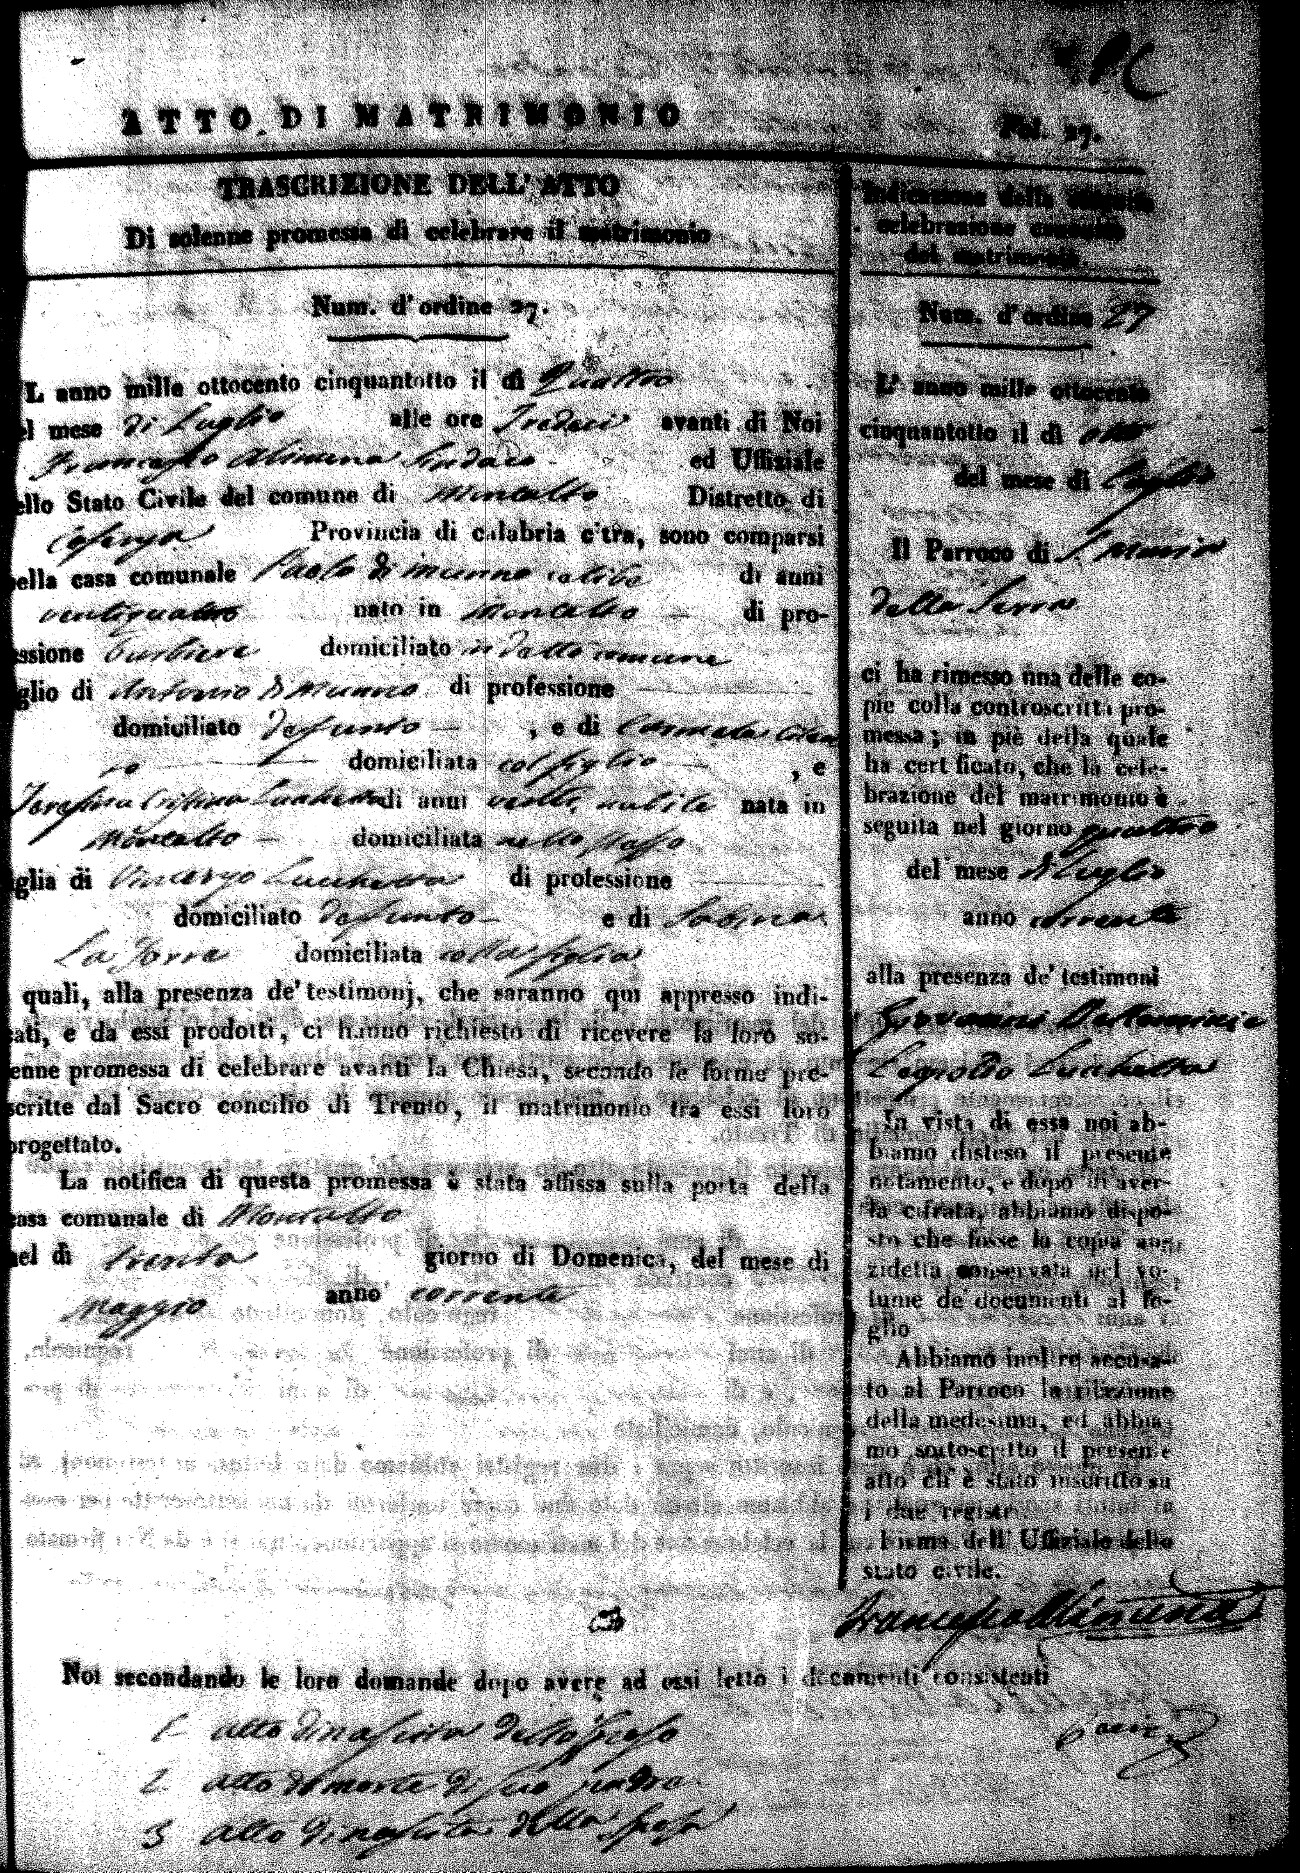 ATTO DI MATRIMONIO
Fol. 27.
TRASCRIZIONE DELL' ATTO
Di solenne promessa di celebrare il matrimonio
Num. d'ordine 27.
L anno mille ottocento cinquantotto il dì Quattro
el mese di Luglio alle ore Tredeci avanti di Noi
Francesco Alimena Sindaco ed Uffiziale
ello Stato Civile del comune di Montalto Distretto di
Cosenza Provincia di calabria c'tra, sono comparsi
nella casa comunale Paolo di Munno celibe di anni
ventiquattro nato in Montalto di pro-
essione Barbiere domiciliato in detto comune
glio di Antonio di Munno di professione
domiciliato defunto , e di Carmela
domiciliata col figlio , e
Teresina Cristina Lucchetta di anni venti, nubile nata in
Montalto domiciliata nello stesso
iglia di Vincenzo Lucchetta di professione
domiciliato defunto e di Sabina
La Torre domiciliata colla figlia
quali, alla presenza de' testimonj, che saranno qui appresso indi-
cati, e da essi prodotti, ci hanno richiesto di ricevere la loro so-
enne promessa di celebrare avanti la Chiesa, secondo le forme pre-
scritte dal Sacro concilio di Trento, il matrimonio tra essi loro
progettato.
La notifica di questa promessa è stata affissa sulla porta della
casa comunale di Montalto
nel dì trenta giorno di Domenica, del mese di
Maggio anno corrente
Indicazione della
celebrazione canonica
del matrimonio
Num. d'ordine 27
L' anno mille ottocento
cinquantotto il dì otto
del mese di Luglio
Il Parroco di S. Maria
della Serra
ci ha rimesso una delle co-
pie colla controscritta pro-
messa; in piè della quale
ha certificato, che la cele-
brazione del matrimonio è
seguita nel giorno quattro
del mese di Luglio
anno corrente
alla presenza de' testimoni
Giovanni
Leopoldo Lucchetta
In vista di essa noi ab-
biamo disteso il presente
notamento, e dopo di aver-
la cifrata, abbiamo dispo-
sto che fosse la copia an-
zidetta conservata nel vo-
lume de' documenti al fo-
glio
Abbiamo inoltre accusa-
to al Parroco la ricezione
della medesima, ed abbia-
mo sottoscritto il presente
atto ch' è stato inscritto su
i due registri
Firma dell' Uffiziale dello
stato civile.
Francesco Alimena
Noi secondando le loro domande dopo avere ad essi letto i documenti consistenti
1 atto di nascita dello sposo
2 atto di morte di suo padre
3 atto di nascita della sposa